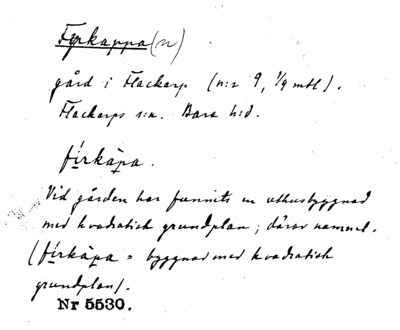 Fyrkappa(n)
gård i Flackarp (n:r 9, 1/9 mtl).
Flackarps s:n. Bara h:d.
fírkàpa.
Vid gården har funnits en uthusbyggnad
med kvadratisk grundplan; därav namnet.
(fírkàpa = byggnad med kvadratisk
grundplan).
Nr 5530.